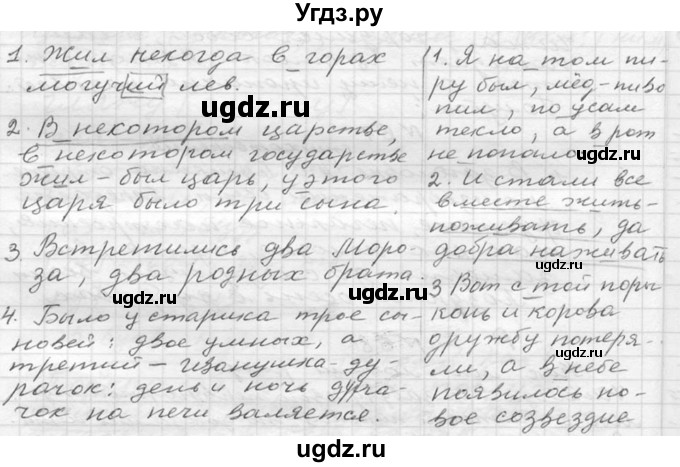 Угдз.ру
1. Жил некогда в горах
могучий лев.
2. В некотором царстве,
в некотором государстве
жил-был царь, у этого
царя было три сына.
3 Встретились два Моро-
за, два родных брата.
4. Было у старика трое сы-
новей: двое умных, а
третий - Иванушка-ду-
рачок: день и ночь дура-
чок на печи валяется.
1. Я на том пи-
ру был, мёд-пиво
пил, по усам
текло, а в рот
не попало
2. И стали все
вместе жить-
поживать, да
добра наживать
3 Вот с той поры
конь и корова
дружбу потеря-
ли, а в небе
появилось но-
вое созвездие
ugdz.ru
ugdz.ru
ugdz.ru
ugdz.ru
ugdz.ru
ugdz.ru
ugdz.ru
ugdz.ru
ugdz.ru